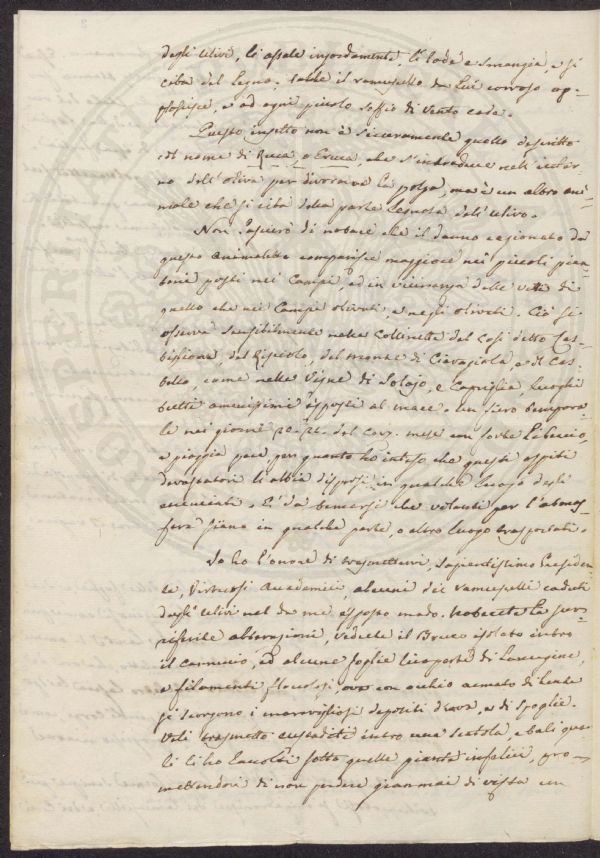 degli ulivi, li assale ingordamente, li lode e smangia, e si
ciba del legno; talche il ramuscello da lui corroso ap-
passisce, e ad ogni piccolo soffio di vento cade.
Questo insetto non è sicuramente quello descritto
col nome di Ruca, o Eruca, che s'introduce nell'inter-
no dell'oliva per divorarne la polpa, ma è un altro ani-
male che si ciba della parte legnosa dell'ulivo.
Non lascerò di notare che il danno cagionato da
questo animaletto comparisce maggiore nei piccoli pian-
toni posti nei Campi, ed in vicinanza delle viti di
quello che nei Campi olivati, e negli oliveti. Ciò si
osserva sensibilmente nelle Collinette del così detto Cas-
tiglione, del del monte di Ciavagiola, e di Cas-
tello, come nelle Vigne di Solajo, e Capriglia, luoghi
tutti amenissimi esposti al mare. Un fiero tempora-
le nei giorni 20. 21. del corr. mese con forte Libeccio,
e pioggia pare, per quanto ho inteso che questi ospiti
devastatori li abbia dispersi in qualche luogo degli
accennati. È da temersi che volanti per l'atmos-
fera siano in qualche parte, o altro luogo trasportati.
Io ho l'onore di trasmettervi, Sapientissimo Presiden-
te, Virtuosi Accademici, alcuni dei ramuscelli caduti
dagli ulivi nel da me esposto modo. Noterete le sur-
riferite alterazioni, vedrete il Bruco isolato entro
il , ed alcune foglie ricoperte di Lanugine,
e filamenti floccosi, ove con occhio armato di lente
si scorgono i maravigliosi depositi d'uova, e di spoglie.
Voli trasmetto custoditi entro una scatola, e tali qua-
li li ho raccolti sotto quelle piante infelici, pro-
mettendovi di non perdere giammai di vista un